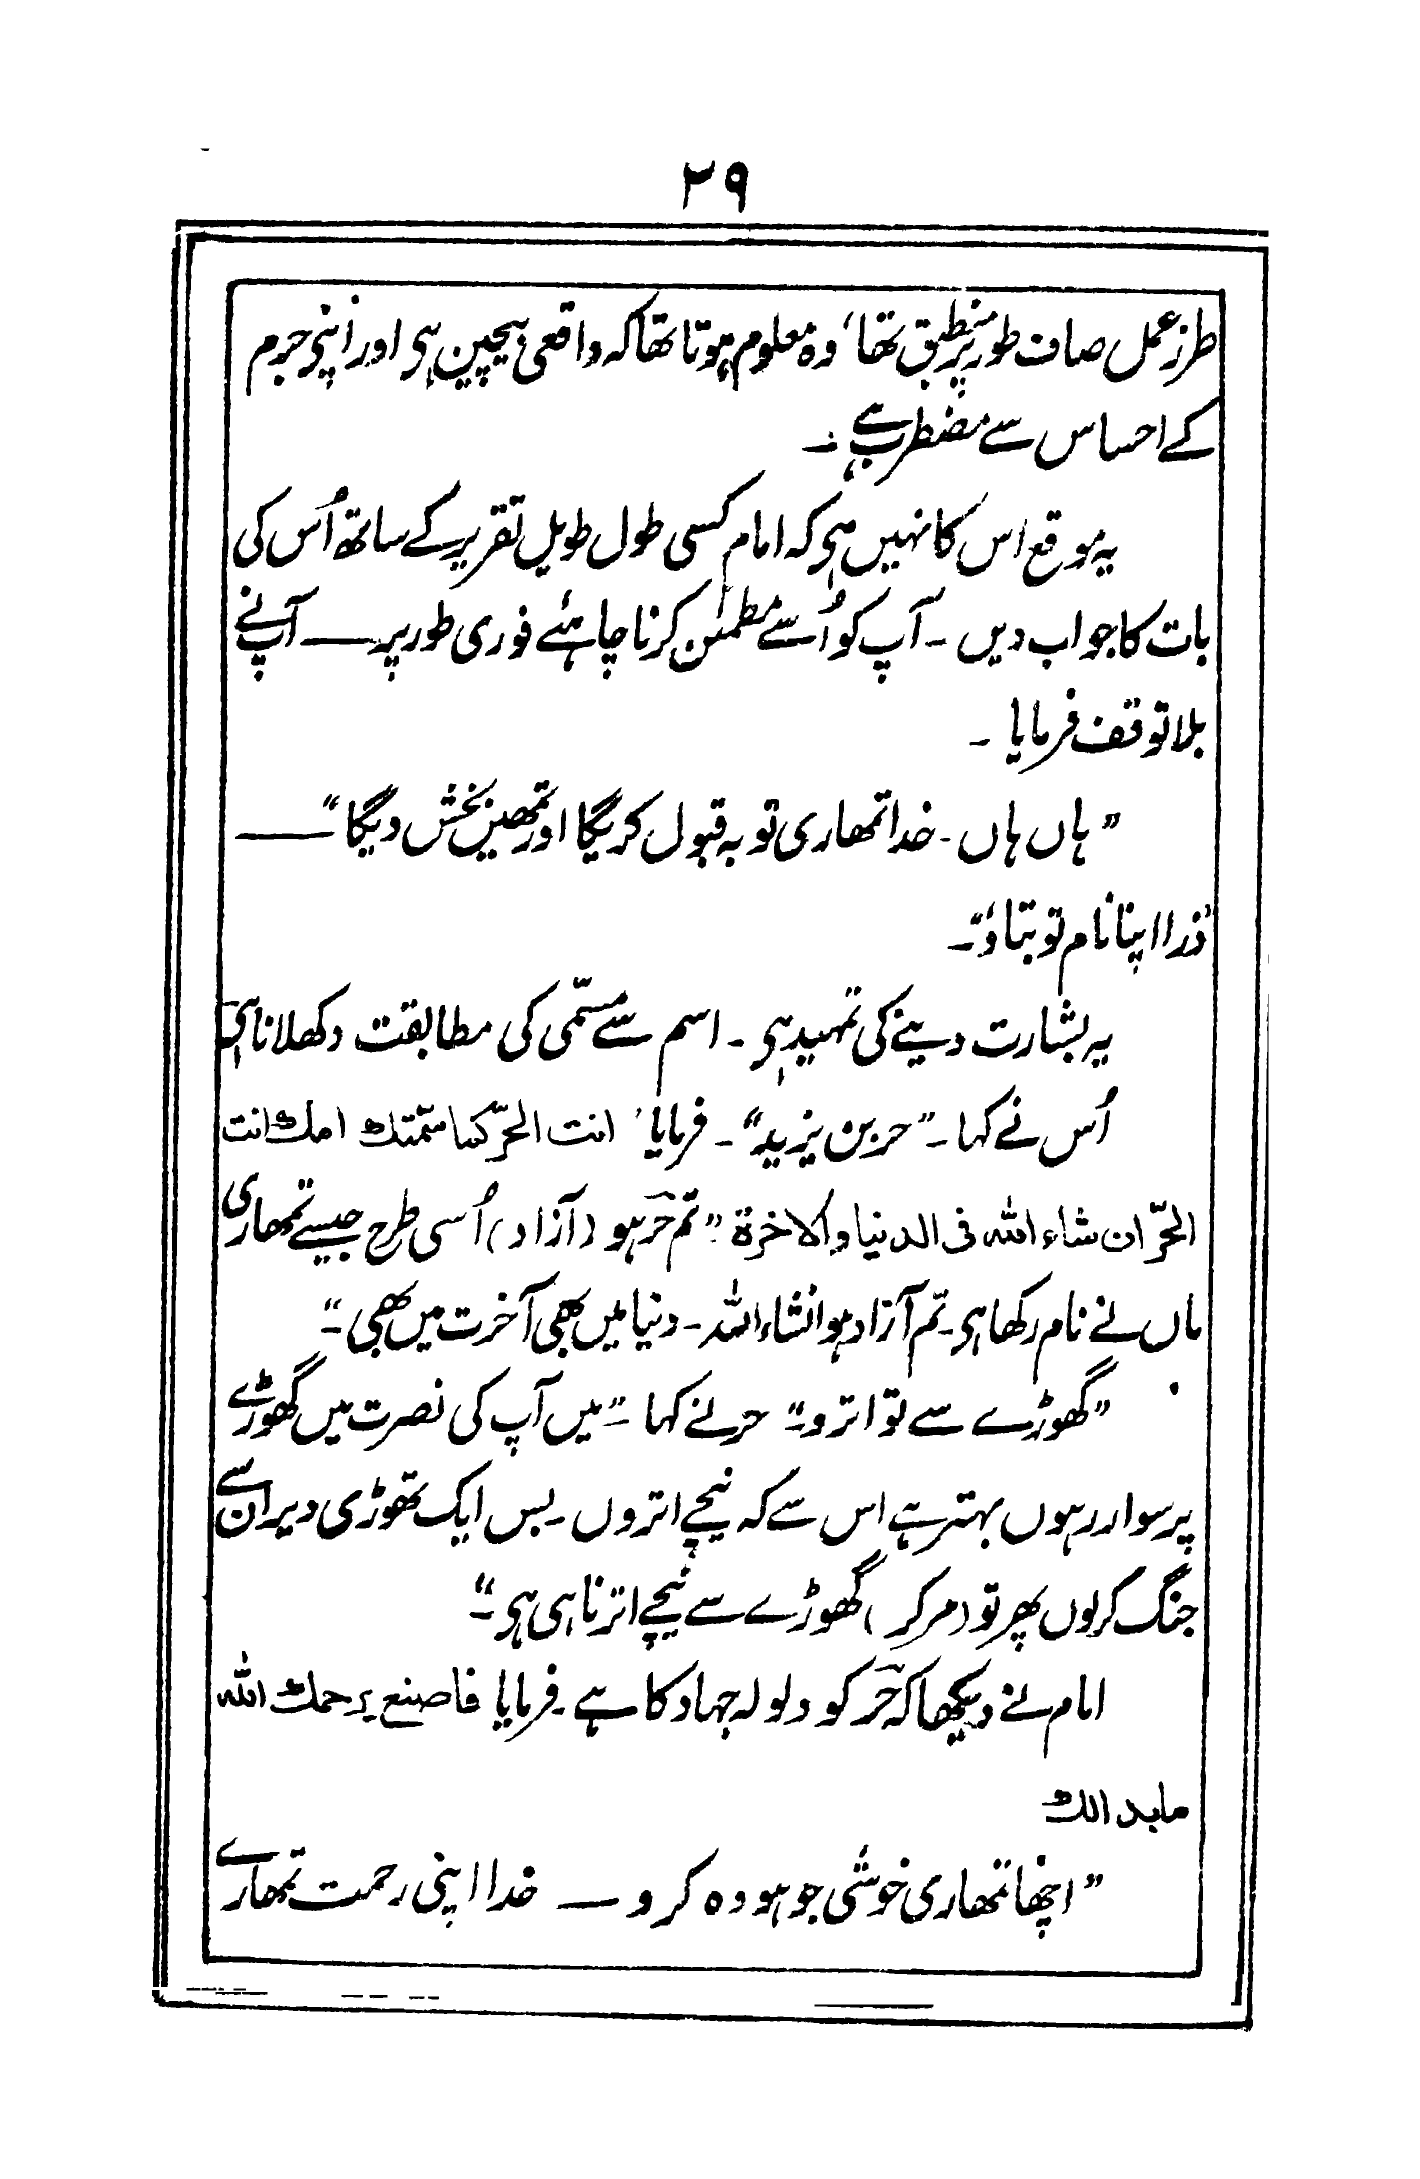 ۳۹
طرز عمل صاف طور پر منطبق تھا، وہ معلوم ہوتا تھا کہ واقعی بیچین ہی اور اپنی جرم
کے احساس سے مضطرب ہے۔
یہ موقع اس کا نہیں ہی کہ امام کسی طول طویل تقریر کے ساتھ اُس کی
بات کا جواب دیں۔ آپ کو اُسے مطمئن کرنا چاہئے فوری طور پر ــــ آپ نے
بلا توقف فرمایا۔
”ہاں ہاں۔ خدا تمھاری توبہ قبول کریگا اور تمھیں بخش دیگا“ ــــ
”ذرا اپنا نام تو بتاؤ“۔
یہ بشارت دینے کی تمہید ہی۔ اسم سے مسمّی کی مطابقت دکھلانا ہی
اُس نے کہا۔ ”حر بن یزید“۔ فرمایا، انت الحرّ کما سمّتک امک انت
الحرّ ان شاء اللہ فی الدنیا والاخرۃ ”تم حُر ہو (آزاد) اُسی طرح جیسے تمھاری
ماں نے نام رکھا ہی۔ تم آزاد ہو انشاء اللہ۔ دنیا میں بھی آخرت میں بھی“۔
”گھوڑے سے تو اترو“۔ حر نے کہا۔ ”میں آپ کی نصرت میں گھوڑے
پر سوار رہوں بہتر ہے اس سے کہ نیچے اتروں۔ بس ایک تھوڑی دیر ان سے
جنگ کرلوں پھر تو (مرکر) گھوڑے سے نیچے اترنا ہی ہی“۔
امام نے دیکھا کہ حُر کو ولولہ جہاد کا ہے۔ فرمایا فاصنع یرحمک اللہ
مابدالک
”اچھا تمھاری خوشی جو ہو وہ کرو ــــ خدا اپنی رحمت تمھارے